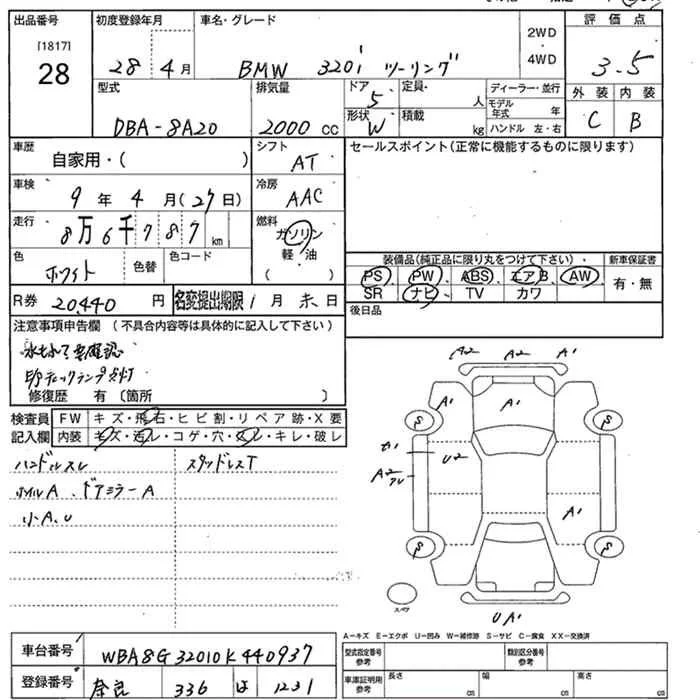 出品番号
[1817]
28
初度登録年月
28年4月
車名・グレード
BMW 320i ツーリング
2WD
4WD
評価点
3.5
外装 内装
C B
型式
DBA-8A20
排気量
2000 cc
ドア
5
形状
W
定員
人
積載
kg
ディーラー・並行
モデル年式 年
ハンドル 左・右
車歴
自家用・( )
シフト
AT
セールスポイント(正常に機能するものに限ります)
車検
9年4月(27日)
冷房
AAC
走行
8万6千787km
燃料
ガソリン
軽・油
( )
色
ホワイト
色替
色コード
装備品(純正品に限り丸をつけて下さい)
新車保証書
PS PW ABS エアB AW
SR ナビ TV カワ
有・無
R券
20,440 円
名変提出期限 1月末日
後日品
注意事項申告欄 (不具合内容等は具体的に記入して下さい)
水もれ 要確認
チェックランプ点灯
修復歴 有 (箇所 )
検査員
記入欄
FW キズ・飛石・ヒビ割・リペア跡・X要
内装 キズ・汚レ・コゲ・穴・スレ・キレ・破レ
ハンドルスレ
スタッドレスT
ホイルA、ドアミラーA
小A、U
A2 A2 A1
A1
A1
S
S
U2
A2
A1
S
S
スペア
UA1
A-キズ E-エクボ U-凹み W-補修跡 S-サビ C-腐食 XX-交換済
車台番号
WBA8G32010K440937
登録番号
奈良 336 は 1231
型式指定番号
参考
類別区分番号
参考
車庫証明用
参考
長さ
cm
幅
cm
高さ
cm